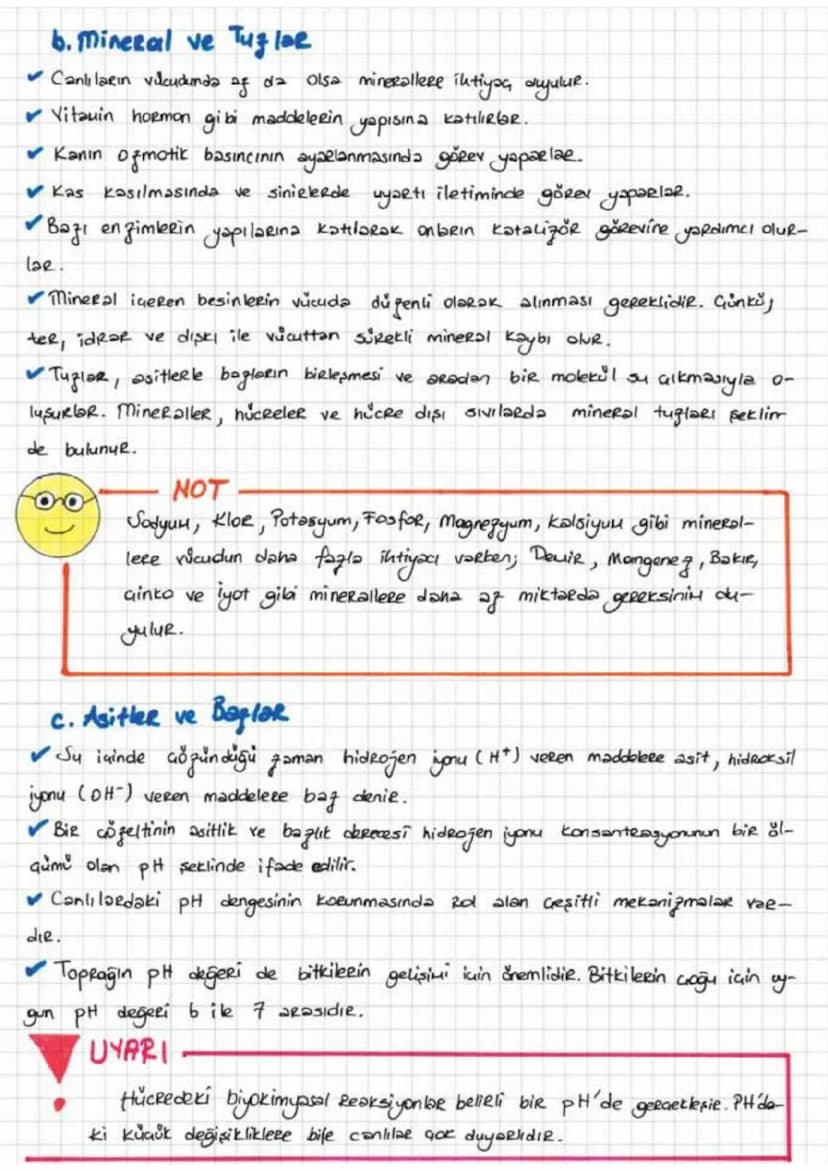 b. Mineral ve Tuzlar
Canlıların vücudunda az da olsa minerallere ihtiyaç duyulur.
Vitamin hormon gibi maddelerin yapısına katılırlar.
Kanın ozmotik basıncının ayarlanmasında görev yaparlar.
Kas kasılmasında ve sinirlerde uyartı iletiminde görev yaparlar.
Bazı enzimlerin yapılarına katılarak onların katalizör görevine yardımcı olur-
lar.
Mineral içeren besinlerin vücuda düzenli olarak alınması gereklidir. Çünkü;
ter, idrar ve dışkı ile vücuttan sürekli mineral kaybı olur.
Tuzlar, asitlerle bazların birleşmesi ve aradan bir molekül su çıkmasıyla o-
luşurlar. Mineraller, hücreler ve hücre dışı sıvılarda mineral tuzları şeklin
de bulunur.
NOT
Sodyum, Klor, Potasyum, Fosfor, Magnezyum, kalsiyum gibi mineral-
lere vücudun daha fazla ihtiyacı varken; Demir, Manganez, Bakır,
çinko ve iyot gibi minerallere daha az miktarda gereksinim du-
yulur.
c. Asitler ve Bazlar
Su içinde çözündüğü zaman hidrojen iyonu (H⁺) veren maddelere asit, hidroksil
iyonu (OH⁻) veren maddelere baz denir.
Bir çözeltinin asitlik ve bazlık derecesi hidrojen iyonu konsantrasyonunun bir öl-
çümü olan pH şeklinde ifade edilir.
Canlılardaki pH dengesinin korunmasında rol alan çeşitli mekanizmalar var-
dır.
Toprağın pH değeri de bitkilerin gelişimi için önemlidir. Bitkilerin çoğu için uy-
gun pH değeri 6 ile 7 arasıdır.
UYARI
Hücredeki biyokimyasal reaksiyonlar belirli bir pH'de gerçekleşir. PH'da-
ki küçük değişikliklere bile canlılar çok duyarlıdır.